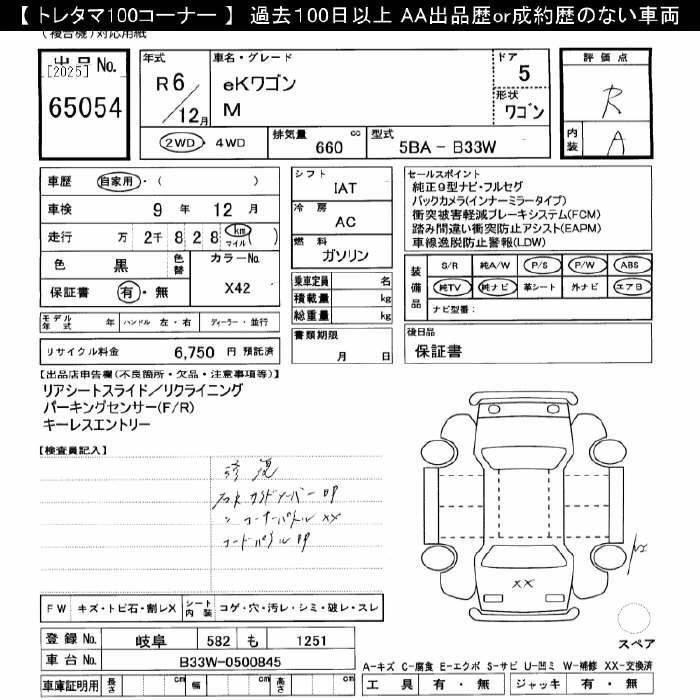 【 トレタマ100コーナー 】 過去100日以上 AA出品歴or成約歴のない車両
(複合機) 対応用紙
出品No.
[2025]
65054
年式
R6/12月
車名・グレード
eKワゴン
M
ドア
5
形状
ワゴン
2WD ・ 4WD
排気量 660 cc
型式 5BA - B33W
評価点
R
内装 A
車歴 自家用・( )
車検 9 年 12 月
走行 万 2千 8 2 8 km マイル ( )
色 黒 色替 カラーNo.
保証書 有・無 X42
モデル年式 年 ハンドル 左・右 ディーラー・並行
リサイクル料金 6,750 円 預託済
シフト
IAT
冷房
AC
燃料
ガソリン
乗車定員 名
積載量 kg
総重量 kg
書類期限
月 日
セールスポイント
純正9型ナビ・フルセグ
バックカメラ(インナーミラータイプ)
衝突被害軽減ブレーキシステム(FCM)
踏み間違い衝突防止アシスト(EAPM)
車線逸脱防止警報(LDW)
装備品
S/R 純A/W P/S P/W ABS
純TV 純ナビ 革シート 外ナビ エアB
ナビ型番:
後日品
保証書
【出品店申告欄(不良箇所・欠品・注意事項等)】
リアシートスライド/リクライニング
パーキングセンサー(F/R)
キーレスエントリー
【検査員記入】
修復
コーナーパネル XX
XX
FW キズ・トビ石・割レX シート内装 コゲ・穴・汚レ・シミ・破レ・スレ
登録 No. 岐阜 582 も 1251
車台 No. B33W-0500845
車庫証明用 長さ cm 幅 cm 高さ cm
スペア
A-キズ C-腐食 E-エクボ S-サビ U-凹ミ W-補修 XX-交換済
工具 有・無 ジャッキ 有・無